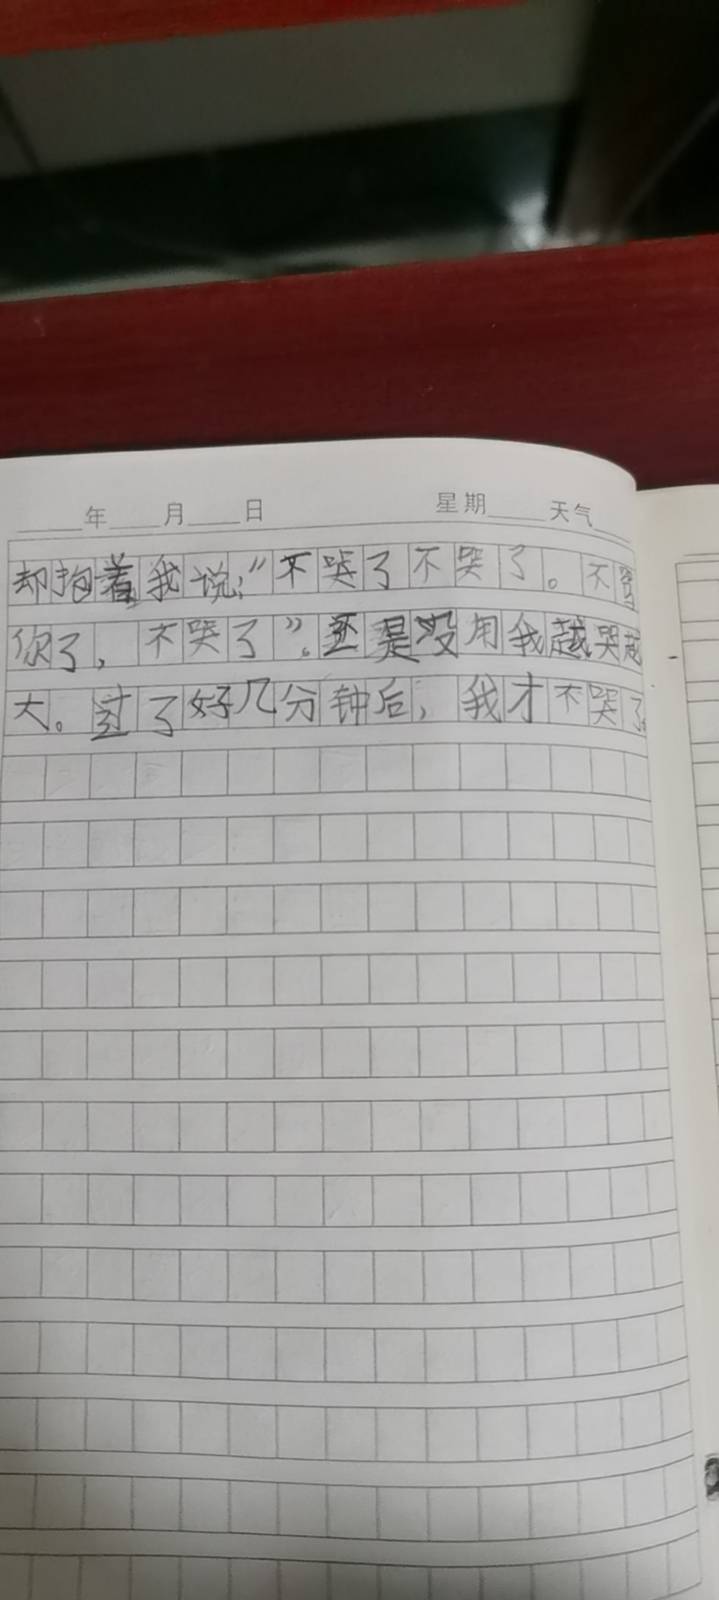 年 月 日 星期 天气
却抱着我说：“不哭了不哭了。不
你了，不哭了”。还是没用我越哭越
大。过了好几分钟后，我才不哭了。